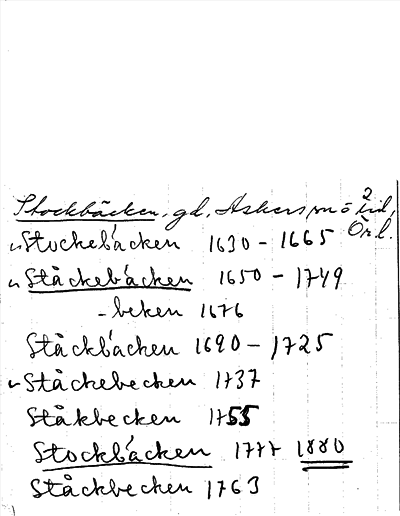 Stockbäcken, gd, Askers
Örl.
Stockebäcken 1630 - 1665
Ståckebäcken 1650 - 1749
-beken 1676
Ståckbäcken 1690 - 1725
Ståckebecken 1737
Ståkbecken 1755
Stockbäcken 1777 1880
Ståckbecken 1763